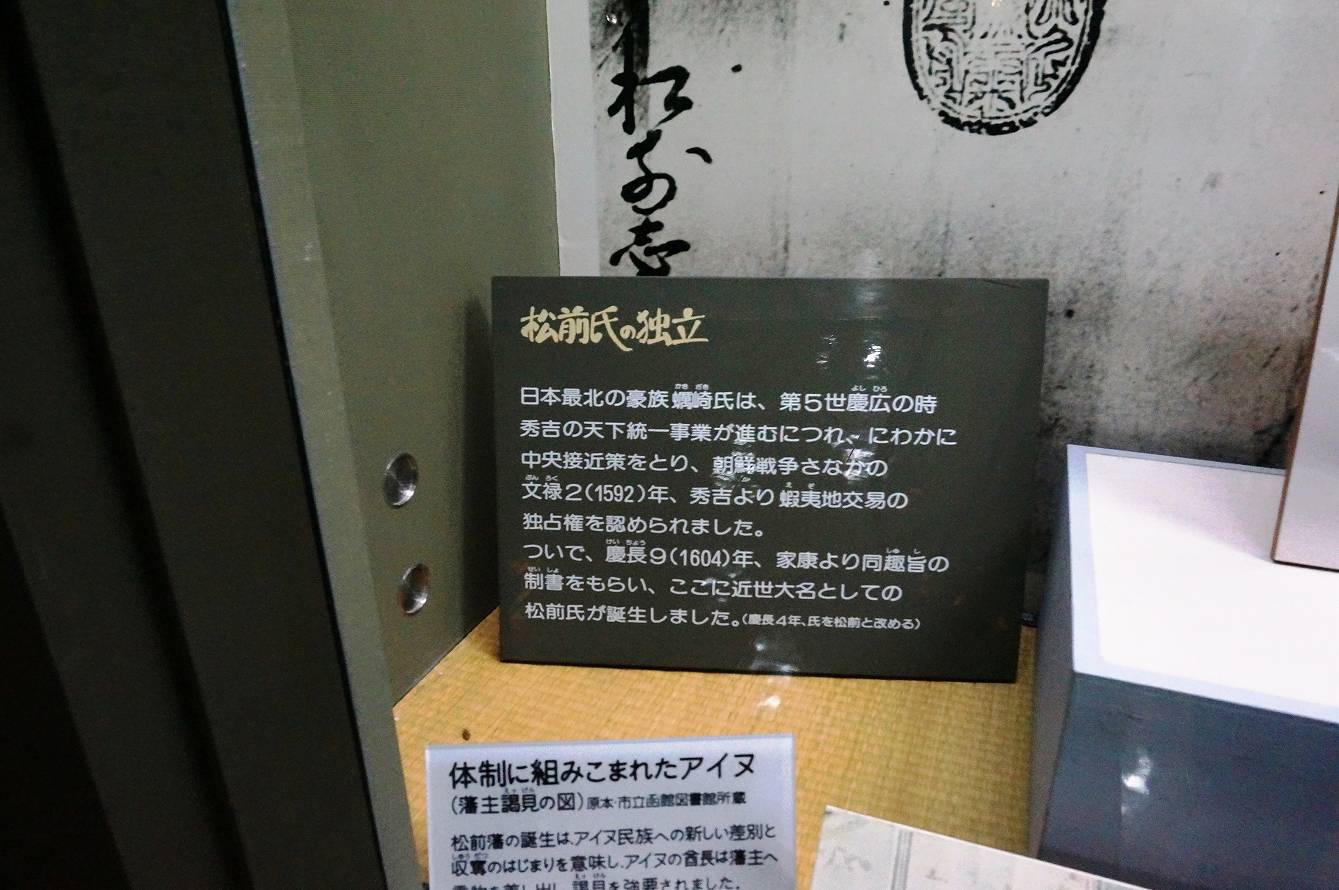 松前志
松前氏の独立
日本最北の豪族蠣崎氏は、第5世慶広の時
秀吉の天下統一事業が進むにつれ、にわかに
中央接近策をとり、朝鮮戦争さなかの
文禄2(1592)年、秀吉より蝦夷地交易の
独占権を認められました。
ついで、慶長9(1604)年、家康より同趣旨の
制書をもらい、ここに近世大名としての
松前氏が誕生しました。(慶長4年、氏を松前と改める)
体制に組みこまれたアイヌ
(藩主謁見の図)原本・市立函館図書館所蔵
松前藩の誕生は、アイヌ民族への新しい差別と
収奪のはじまりを意味し、アイヌの酋長は藩主へ
を差し出し、謁見を強要されました。